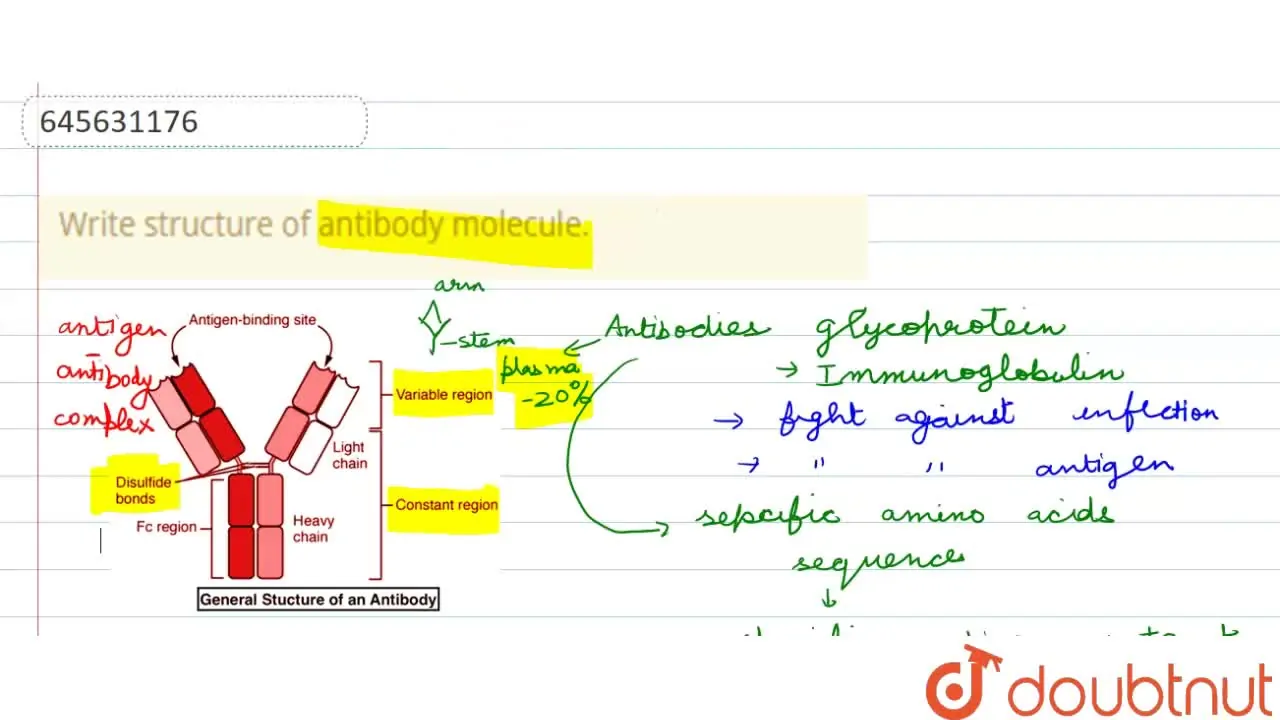 645631176
Write structure of antibody molecule.
arm
stem
antigen
antibody
complex
Antigen-binding site
Variable region
Light
chain
Disulfide
bonds
Constant region
Fc region
Heavy
chain
General Stucture of an Antibody
plasma
-20%
Antibodies glycoprotein
→ Immunoglobulin
→ fight against infection
→ " " antigen
sepcific amino acids
sequences
↓
doubtnut